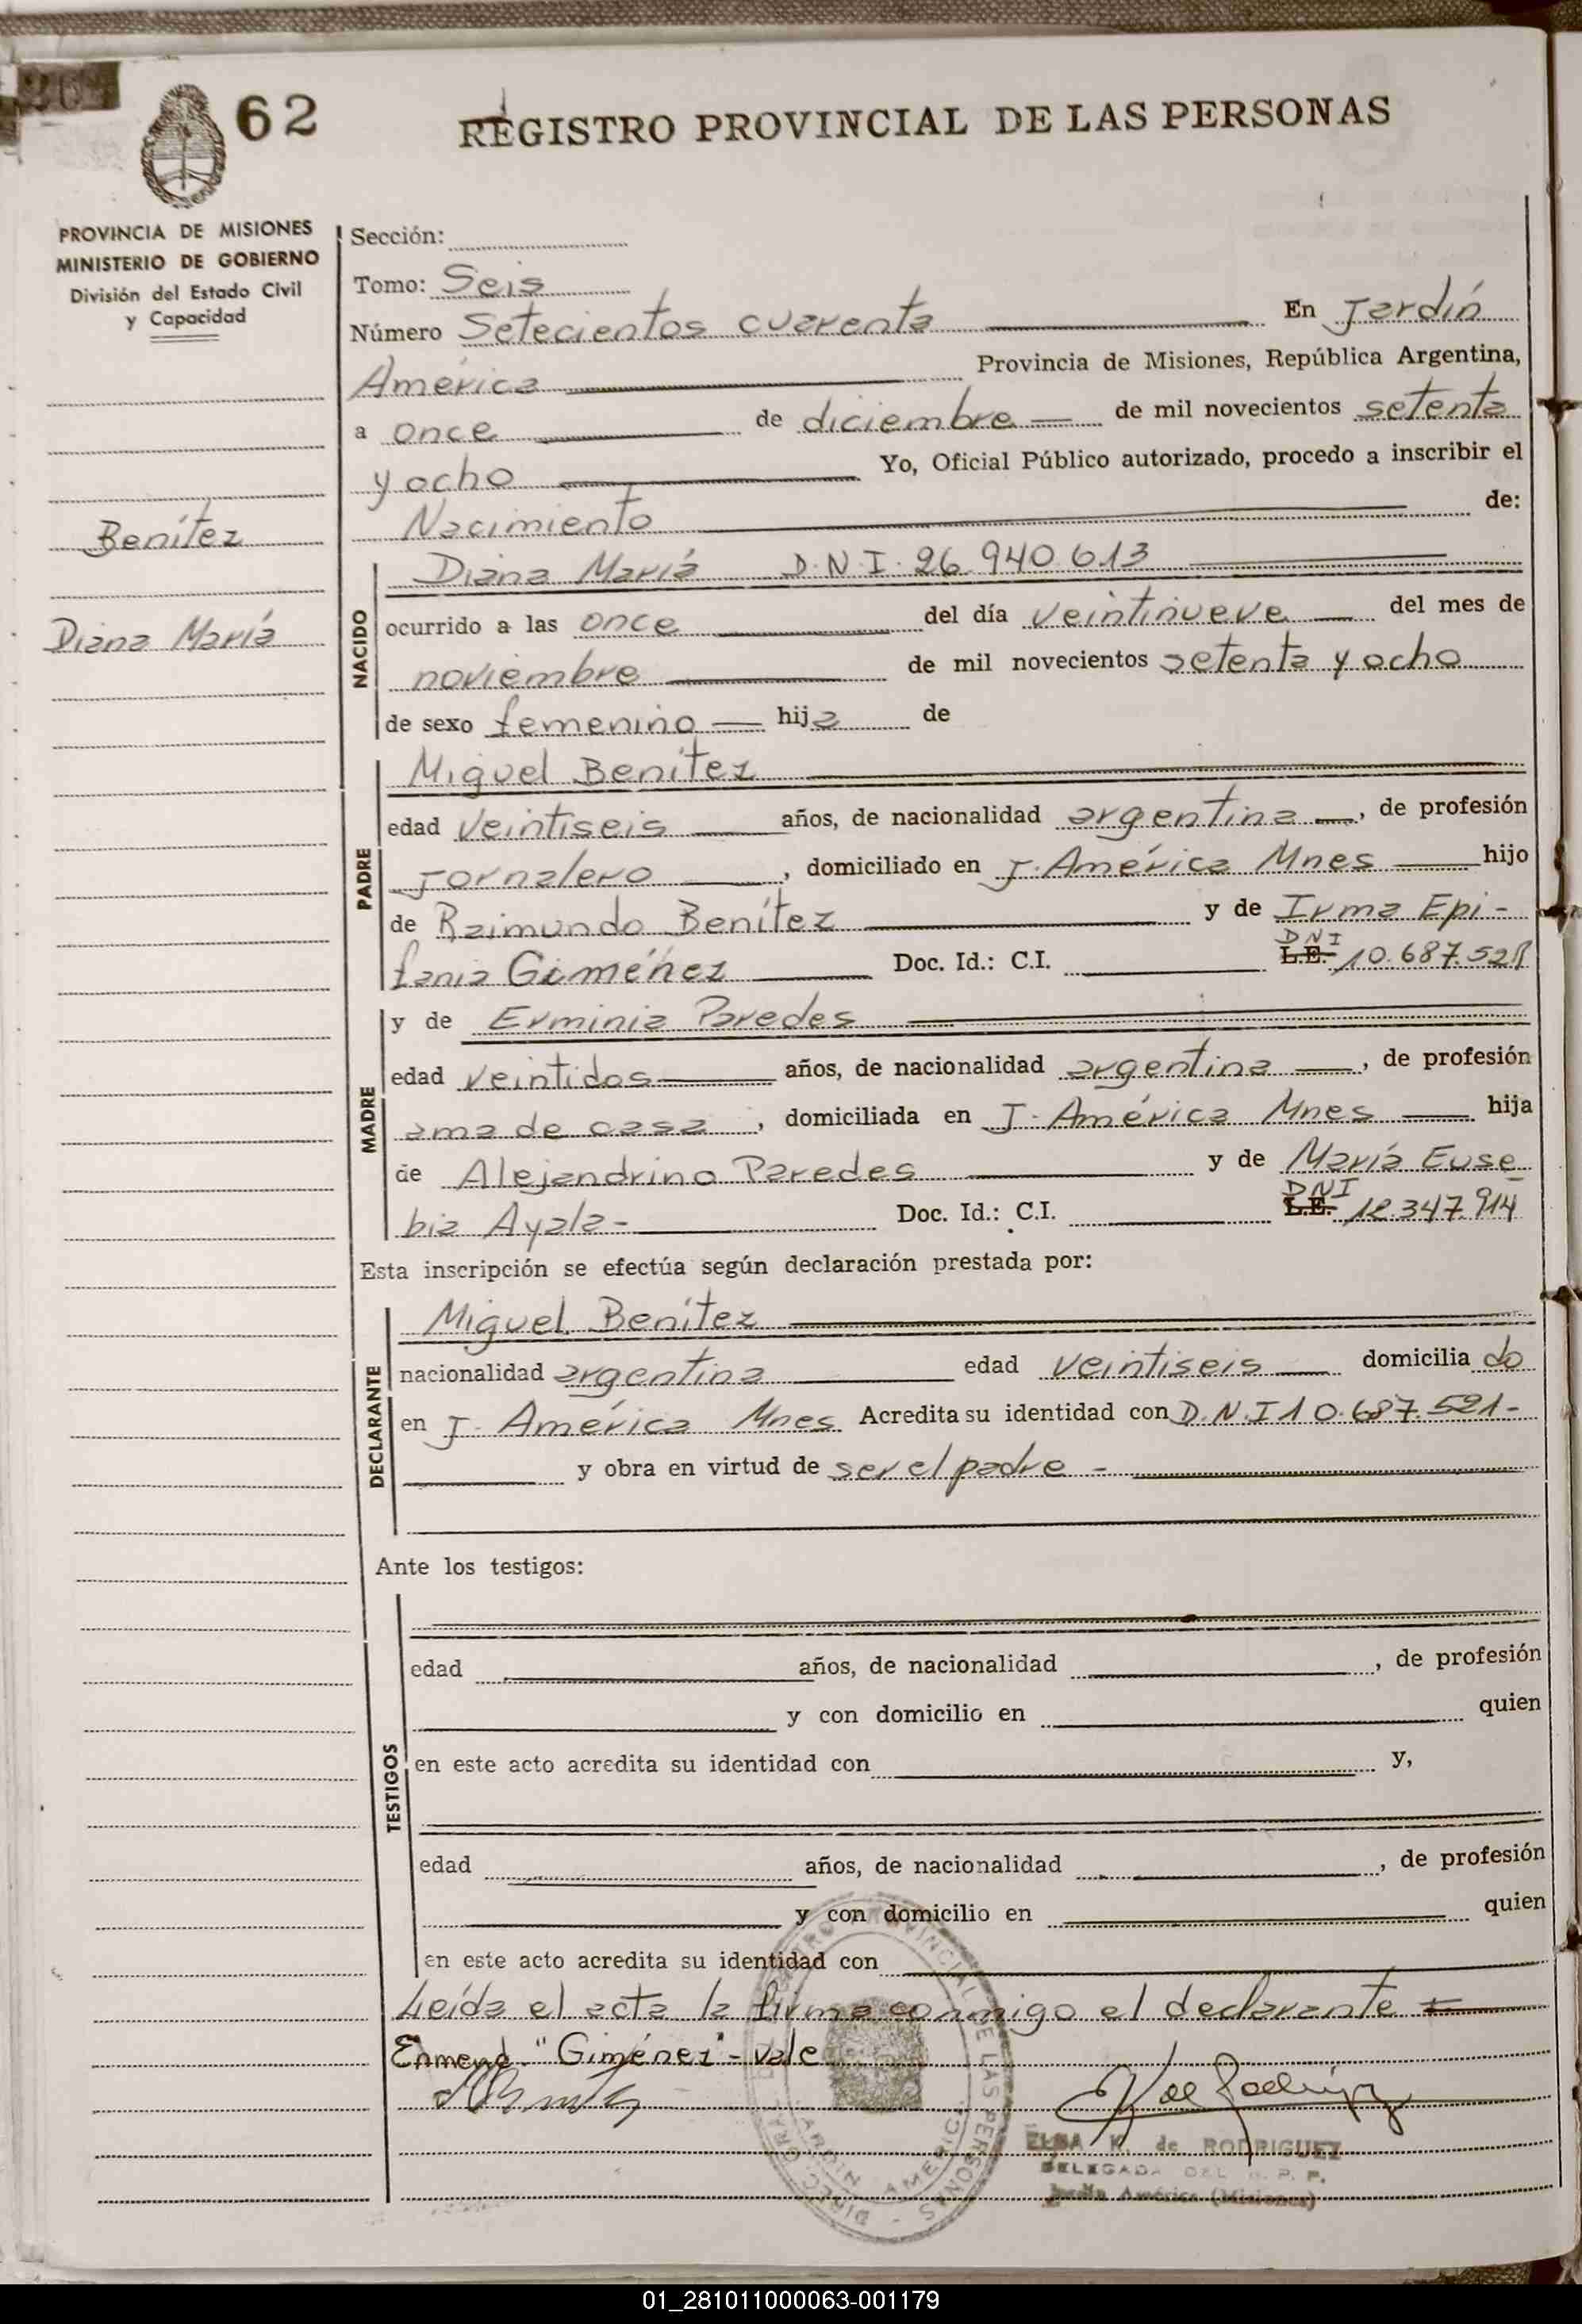 62
REGISTRO PROVINCIAL DE LAS PERSONAS
PROVINCIA DE MISIONES
MINISTERIO DE GOBIERNO
División del Estado Civil
y Capacidad
Benítez
Diana María
Sección:
Tomo: Seis
Número Setecientos cuarenta En Jardín
América Provincia de Misiones, República Argentina,
a once de diciembre de mil novecientos setenta
y ocho Yo, Oficial Público autorizado, procedo a inscribir el
Nacimiento de:
NACIDO
Diana María D.N.I. 26.940.613
ocurrido a las once del día veintinueve del mes de
noviembre de mil novecientos setenta y ocho
de sexo femenino hija de
PADRE
Miguel Benítez
edad veintiseis años, de nacionalidad argentina, de profesión
Jornalero, domiciliado en J. América Mnes hijo
de Raimundo Benítez y de Irma Epi-
fania Giménez Doc. Id.: C.I. L.E. DNI 10.687.521
MADRE
y de Erminia Paredes
edad veintidos años, de nacionalidad argentina, de profesión
ama de casa, domiciliada en J. América Mnes hija
de Alejandrino Paredes y de María Euse
bia Ayala- Doc. Id.: C.I. L.E. DNI 12.347.914
Esta inscripción se efectúa según declaración prestada por:
DECLARANTE
Miguel Benítez
nacionalidad argentina edad veintiseis domiciliado
en J. América Mnes Acredita su identidad con D.N.I 10.687.521-
y obra en virtud de ser el padre -
Ante los testigos:
TESTIGOS
edad años, de nacionalidad , de profesión
y con domicilio en quien
en este acto acredita su identidad con y,
edad años, de nacionalidad , de profesión
y con domicilio en quien
en este acto acredita su identidad con
Leída el acta la firma conmigo el declarante
Enmend. "Giménez" - Vale
ELBA K. de RODRIGUEZ
DELEGADA DEL R. P. P.
Jardín América (Misiones)
01_281011000063-001179